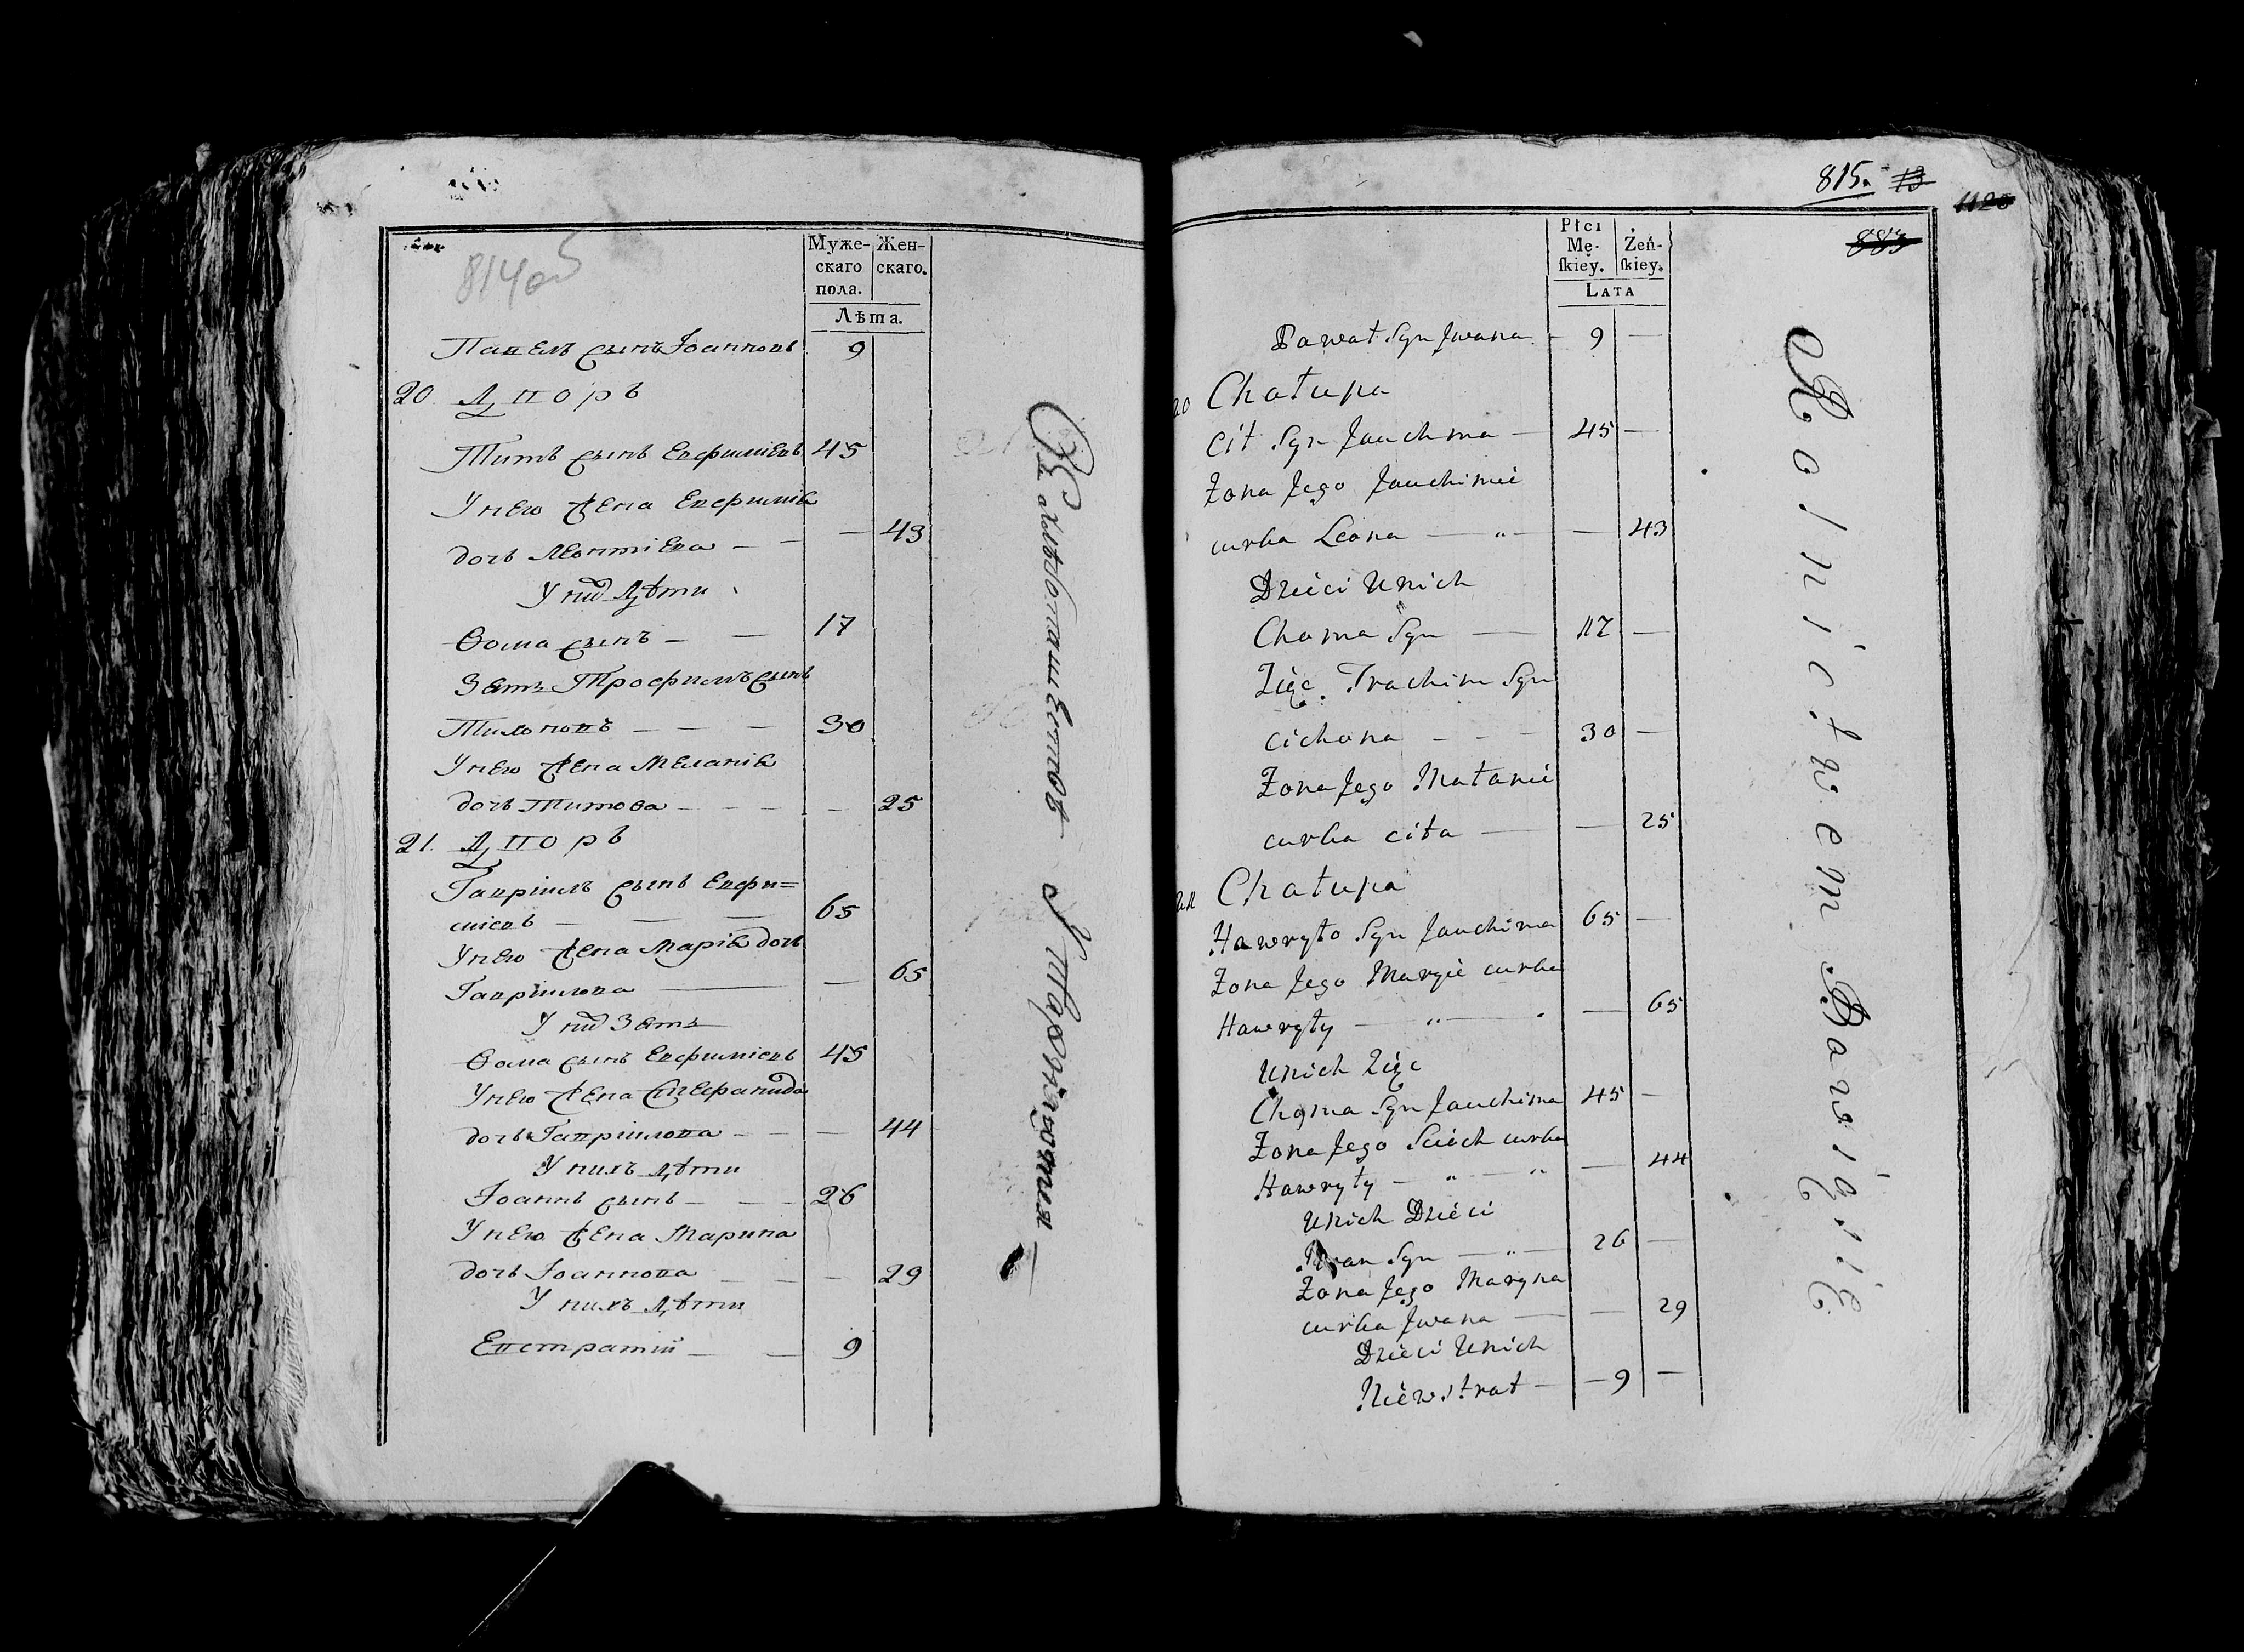 814об
Муже-
скаго
пола.
Жен-
скаго.
Лѣта.
Павелъ сынъ Іоанновъ 9
20. Дворъ
Титъ сынъ Евфиміевъ 45
У него жена Евфимія
дочь Леонтіева — — — 43
У них дѣти
Ѳома сынъ — — 17
Зять Трофимъ сынъ
Тихоновъ — — — 30
У него жена Меланія
дочь Титова — — — — 25
21. Дворъ
Гавріилъ сынъ Евфи=
міевъ — — — 65
У него жена Марія дочь
Гавріилова — — 65
У них Зять
Ѳома сынъ Евфиміевъ 45
У него жена Стефанида
дочь Гавріилова — — — 44
У нихъ дѣти
Іоаннъ сынъ — — — 26
У него жена Марина
дочь Іоаннова — — — 29
У нихъ дѣти
Евстратій — — 9
Хлѣбопашествомъ упражняются
815. 13
1120
883
Płci
Mę-
ſkiey.
Żeń-
ſkiey.
Lata
Pawał Syn Jwana — 9 —
20 Chałupa
Cit Syn Jauchima — 45 —
Żona Jego Jauchimié
curka Leona — „ — — 43
Dziéci Unich
Choma Syn — 17 —
Zięc Trachim Syn
Cichona — — — 30 —
Żona Jego Małanié
curka Cita — — 25
21 Chałupa
Hawryło Syn Jauchima 65 —
Żona Jego Maryié curka
Hawryły — „ — — 65
Unich Zięc
Choma Syn Jauchima 45 —
Żona Jego Sciéch curka
Hawryły — „ — „ — 44
Unich Dziéci
Jwan Syn — „ — 26 —
Żona Jego Maryna
curka Jwana — — 29
Dziéci Unich
Niéwstrat — — 9 —
Rolnictwem Bawią się